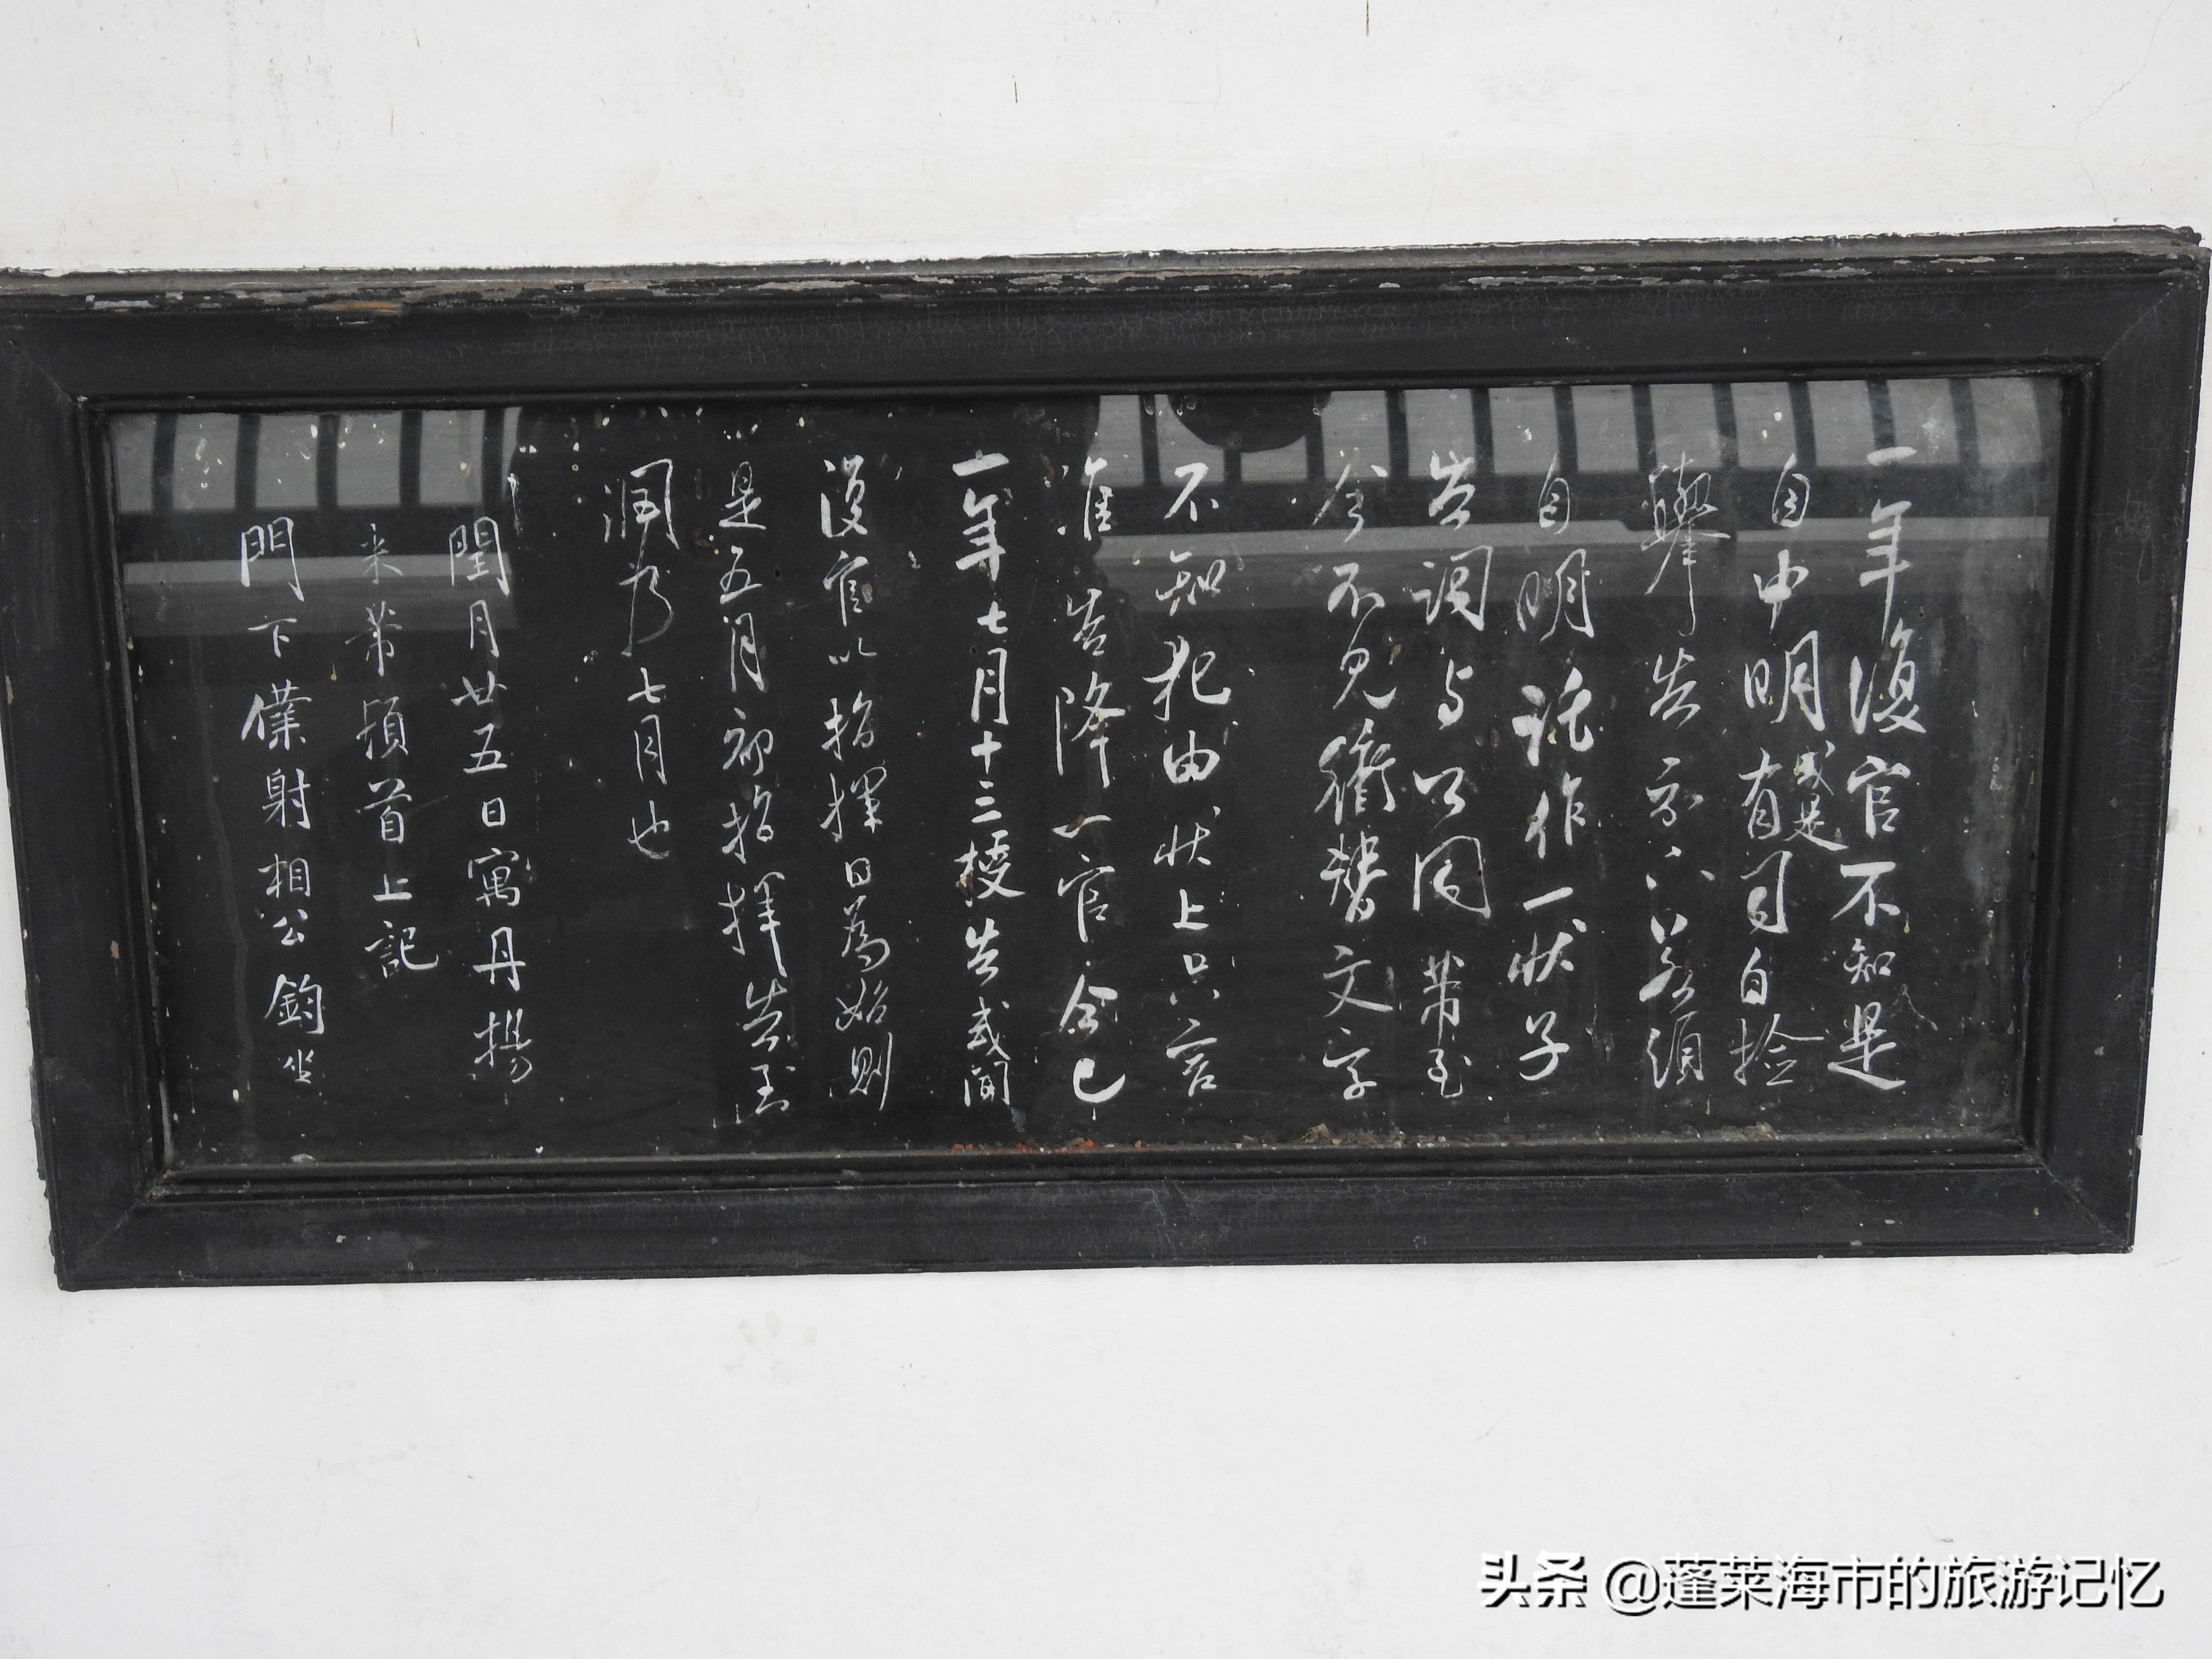 一年復官不知是
自申明或是有司自檢
舉告示下若須
自明託作一狀子
告詞与公同帶至
今不見衝替文字
不知犯由狀上只言
准告降一官今已
一年七月十三授告或聞
復官以指揮日為始則
是五月初指揮告至
潤乃七月也
閏月廿五日寓丹楊
米芾頓首上記
門下僕射相公鈞坐
头条 @蓬莱海市的旅游记忆